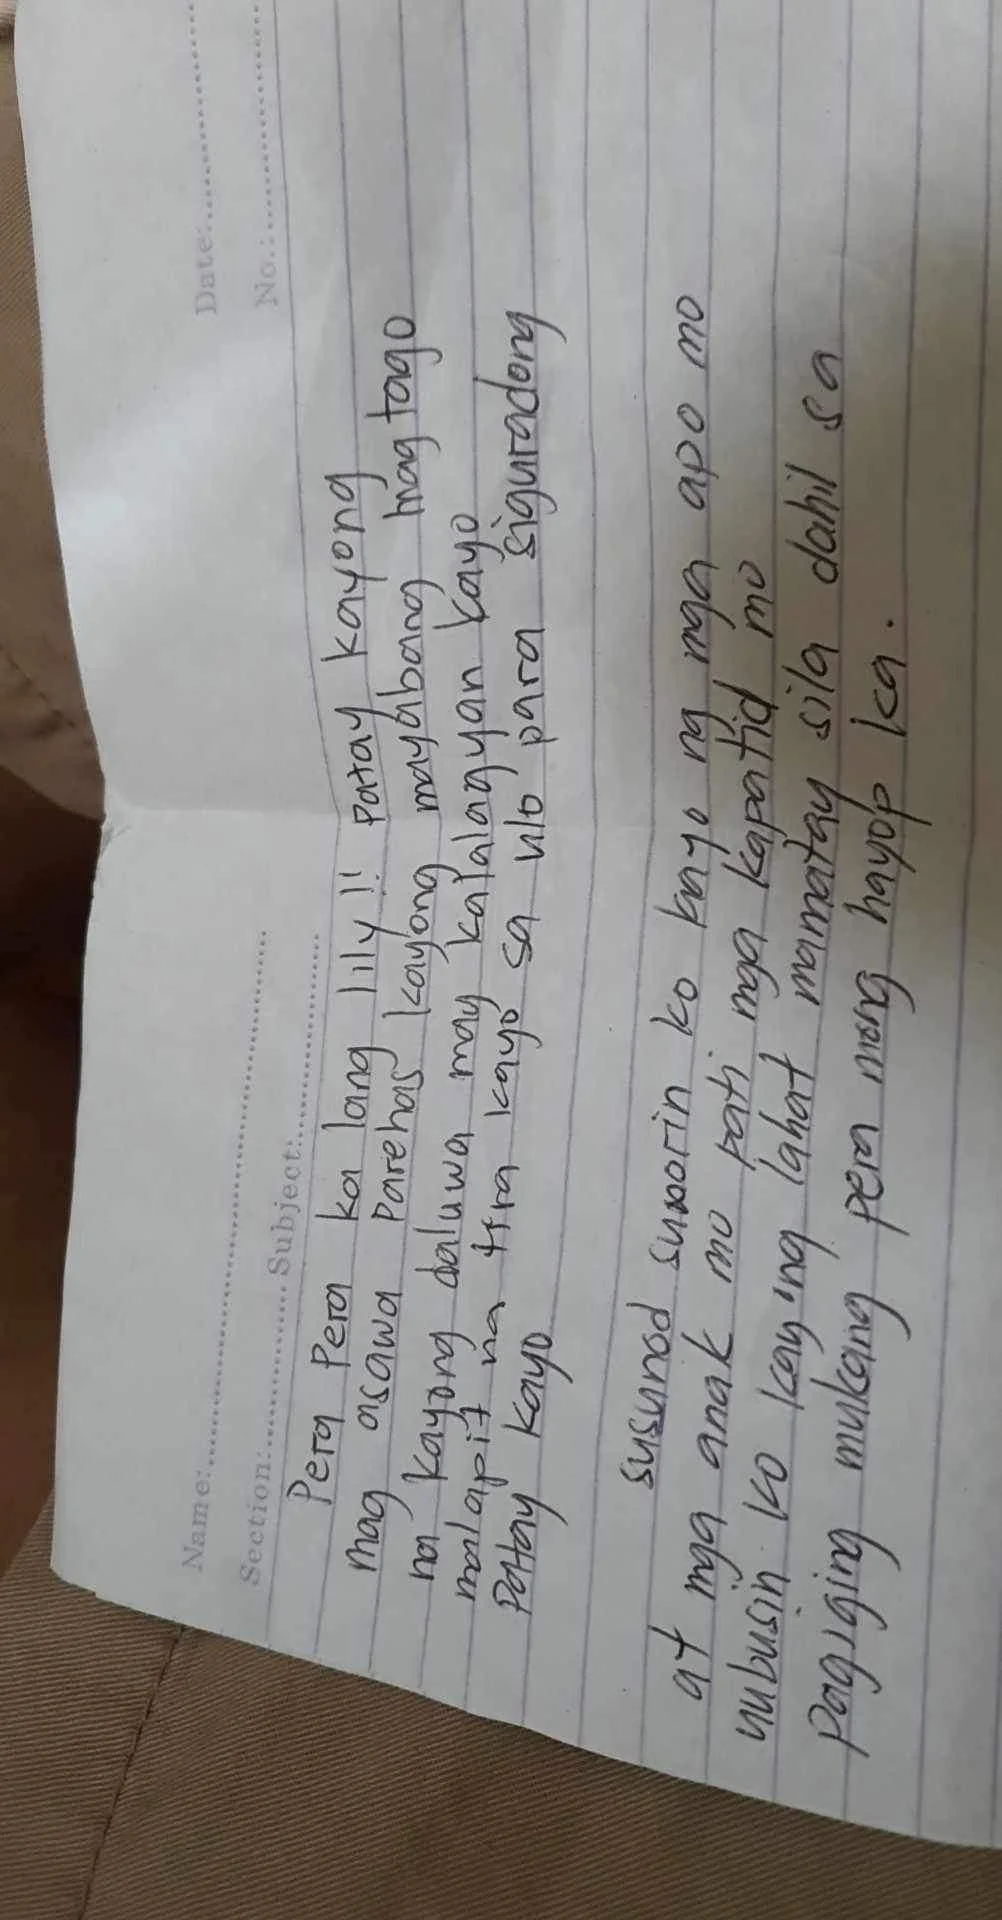 Name:.......... Date:..........
Section:.......... Subject:.......... No.:..........
Pera Pera ka lang lily!! Patay kayong
mag asawa Parehas kayong mayabang magtago
na kayong daluwa may kalalagyan kayo
malapit na tira kayo sa ulo para siguradong
Patay kayo
susunod sunorin ko kayo ng mga apo mo
at mga anak mo pati mga kapatid mo
uubusin ko kayong lahat mamatay sila dahil sa
pagiging mukang pera mong hayop ka.